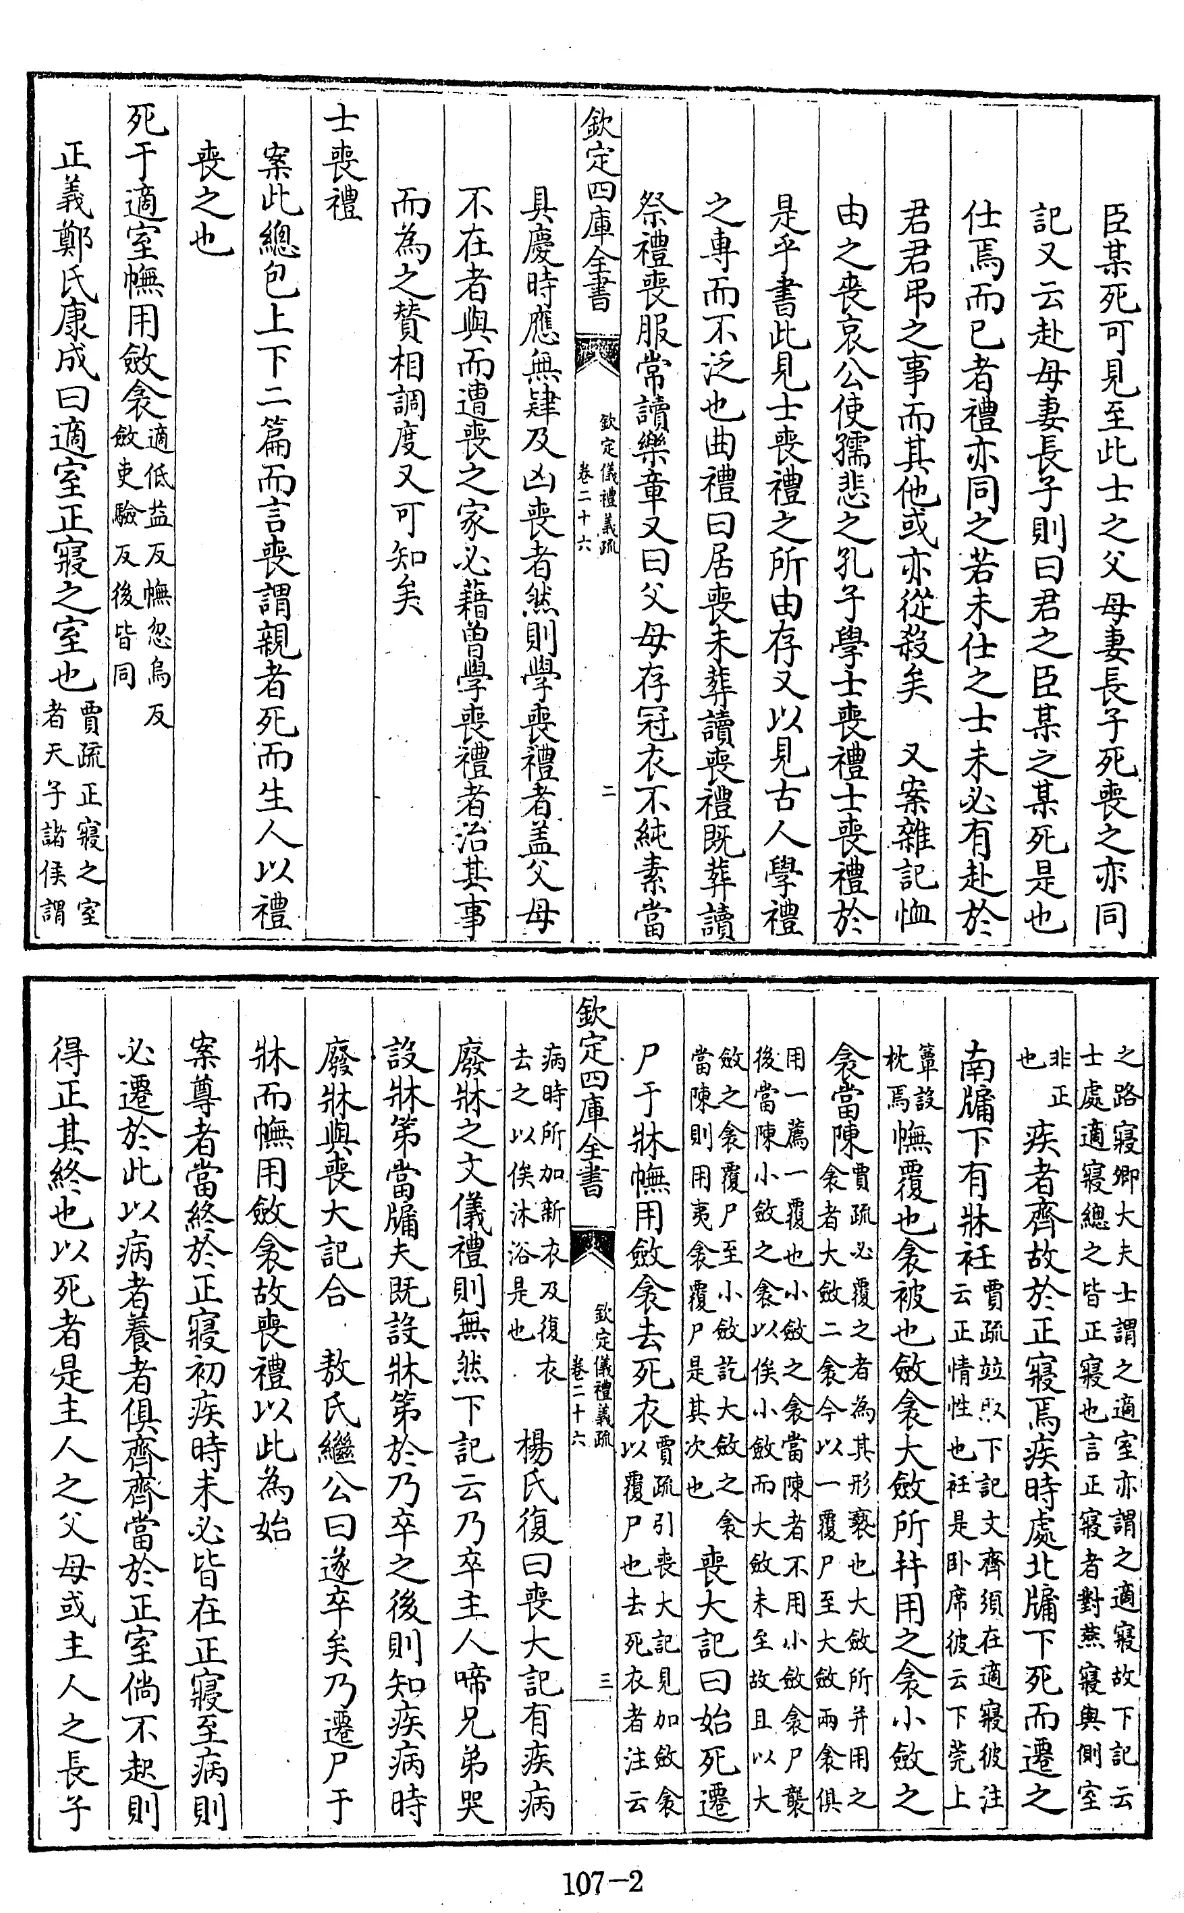 臣某死可見至此士之父母妻長子死喪之亦同
記又云赴母妻長子則曰君之臣某之某死是也
仕焉而已者禮亦同之若未仕之士未必有赴於
君君弔之事而其他或亦從殺矣　又案雜記恤
由之喪哀公使孺悲之孔子學士喪禮士喪禮於
是乎書此見士喪禮之所由存又以見古人學禮
之専而不泛也曲禮曰居喪未葬讀喪禮既葬讀
祭禮喪服常讀樂章又曰父母存冠衣不純素當
欽定四庫全書
欽定儀禮義疏
卷二十六
二
具慶時應無肄及凶喪者然則學喪禮者盖父母
不在者與而遭喪之家必藉曽學喪禮者治其事
而為之賛相調度又可知矣
士喪禮
案此總包上下二篇而言喪謂親者死而生人以禮
喪之也
死于適室幠用斂衾適低益反幠忽烏反
斂吏驗反後皆同
正義鄭氏康成曰適室正寢之室也賈疏正寢之室
者天子諸侯謂
之路寢卿大夫士謂之適室亦謂之適寢故下記云
士處適寢總之皆正寢也言正寢者對燕寢與側室
非正
也
疾者齊故於正寢焉疾時處北牖下死而遷之
南牖下有牀衽賈疏竝取下記文齊須在適寢彼注
云正情性也衽是卧席彼云下莞上
簟設
枕焉
幠覆也衾被也斂衾大斂所并用之衾小斂之
衾當陳賈疏必覆之者為其形褻也大斂所并用之
衾者大斂二衾今以一覆尸至大斂兩衾俱
用一薦一覆也小斂之衾當陳者不用小斂衾尸襲
後當陳小斂之衾以俟小斂而大斂未至故且以大
斂之衾覆尸至小斂訖大斂之衾
當陳則用夷衾覆尸是其次也
喪大記曰始死遷
尸于牀幠用斂衾去死衣賈疏引喪大記見加斂衾
以覆尸也去死衣者注云
欽定四庫全書
欽定儀禮義疏
卷二十六
三
病時所加新衣及復衣
去之以俟沐浴是也
楊氏復曰喪大記有疾病
廢牀之文儀禮則無然下記云乃卒主人啼兄弟哭
設牀第當牖夫既設牀第於乃卒之後則知疾病時
廢牀與喪大記合　敖氏繼公曰遂卒矣乃遷尸于
牀而幠用斂衾故喪禮以此為始
案尊者當終於正寢初疾時未必皆在正寢至病則
必遷於此以病者養者俱齊齊當於正室倘不起則
得正其終也以死者是主人之父母或主人之長子
107-2